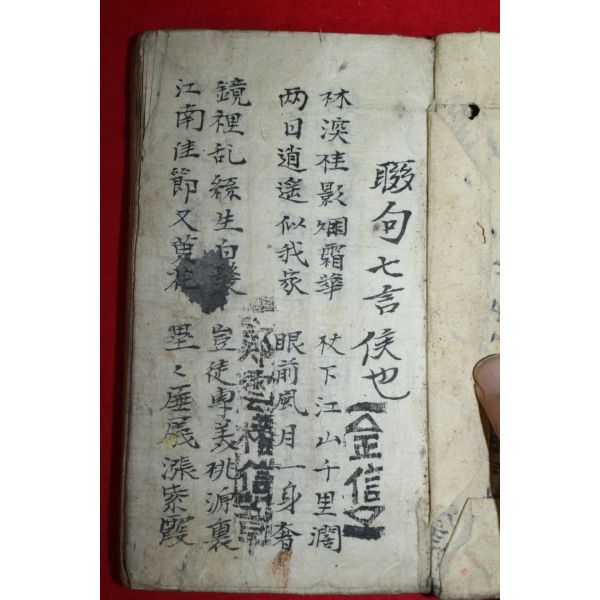 聨句七言 侯也
金信
林深桂影烟霜華 杖下江山千里濶
两日逍遙似我家 眼前風月一身奢
鏡裡乱絲生白髮 豈徒專美桃源裏
江南佳節又黃花 漲紫霞